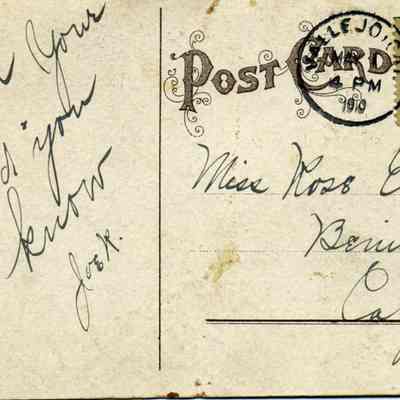 Your
"you
know
Joe K.
POST CARD
VALLEJO,
4 PM
1910
Miss Rose
Beni
Ca